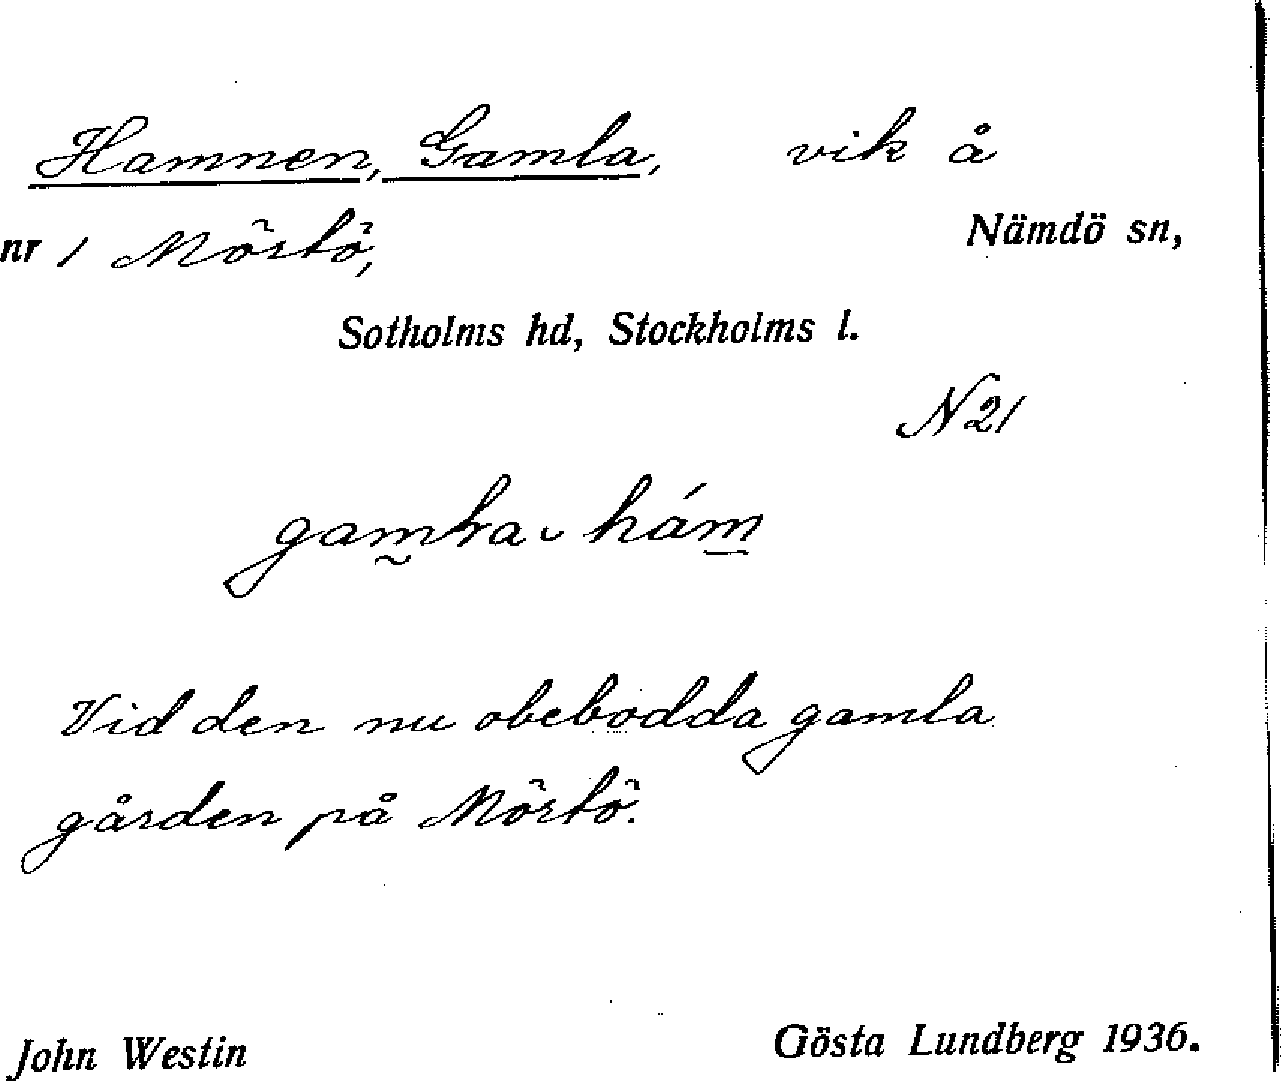 Hamnen, Gamla, vik å
nr 1 Mörtö, Nämdö sn,
Sotholms hd, Stockholms l.
N 21
Vid den nu obebodda gamla
gården på Mörtö.
John Westin Gösta Lundberg 1936.